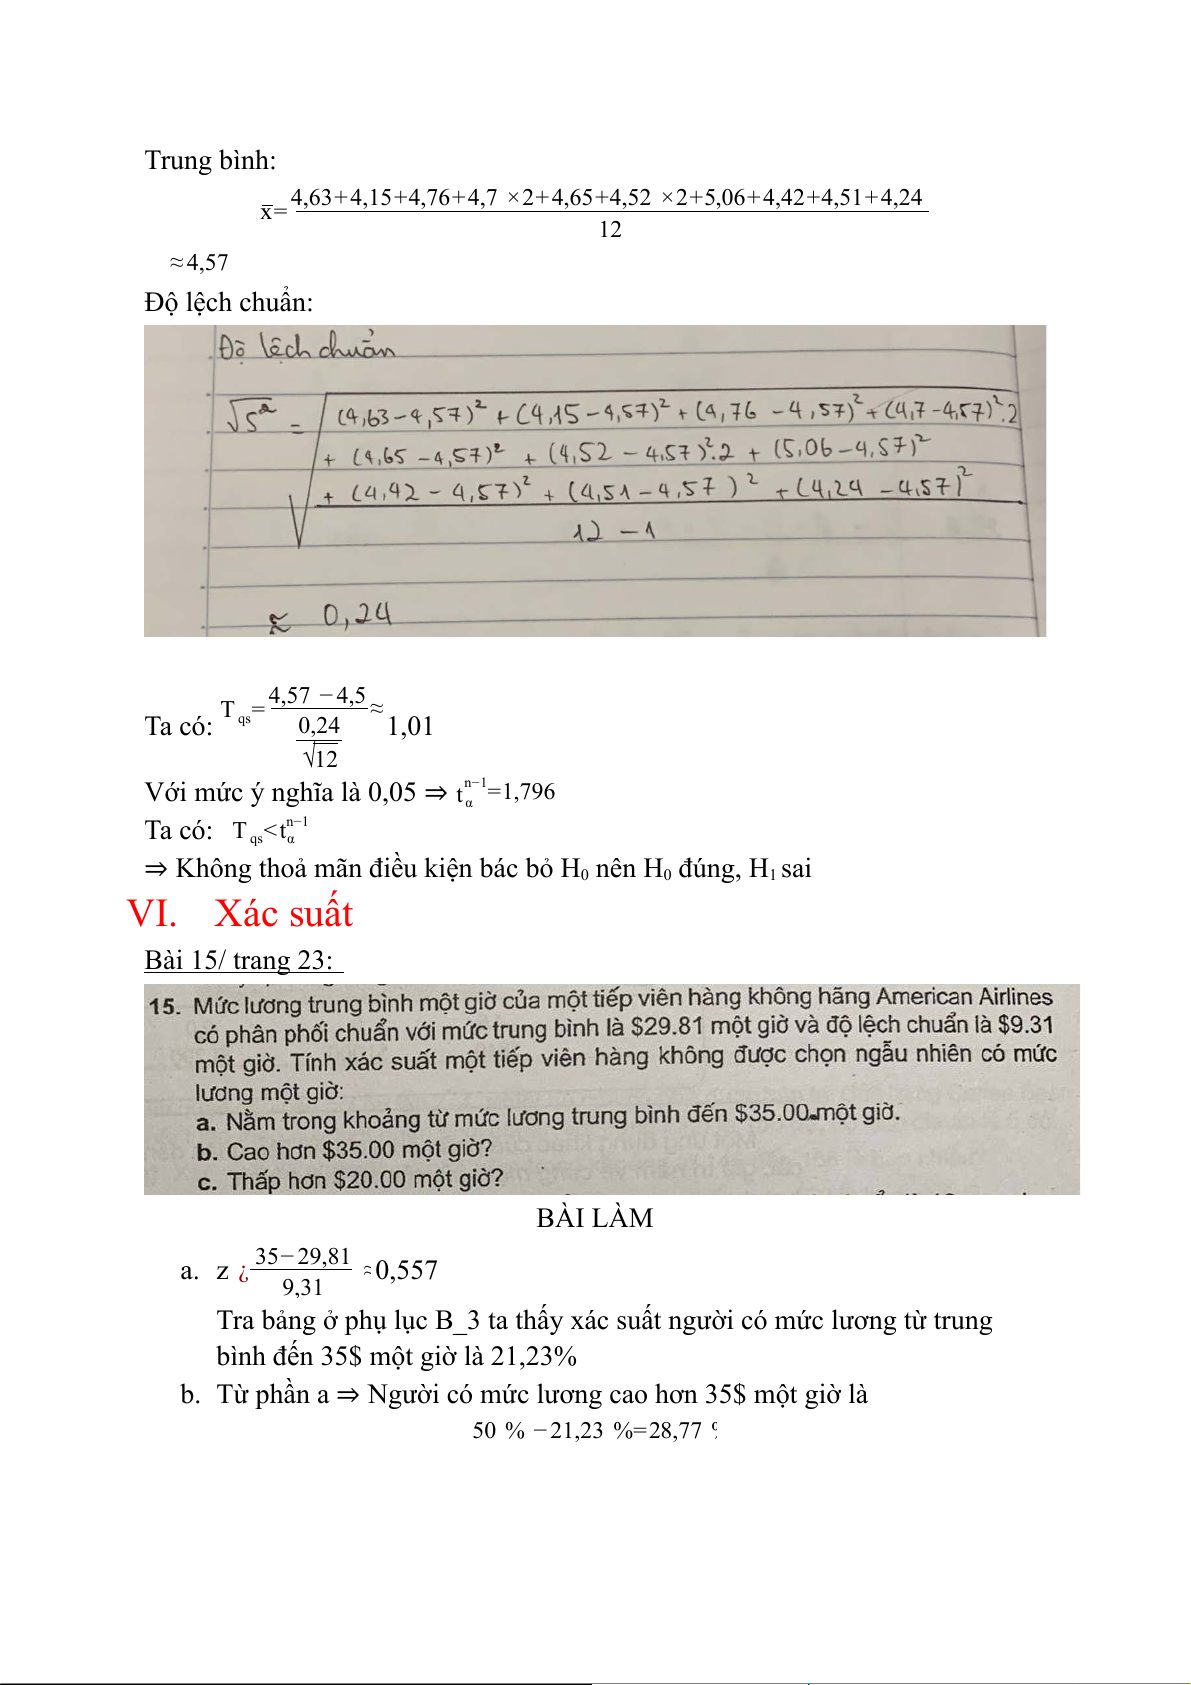 Trung bình:
x̅=4,63+4,15+4,76+4,7 ×2+4,65+4,52 ×2+5,06+4,42+4,51+4,24
12
≈4,57
Độ lệch chuẩn:
Độ lệch chuẩn
√S² = √(4,63-4,57)² + (4,15-4,57)² + (4,76-4,57)² + (4,7-4,57)².2
+ (4,65-4,57)² + (4,52-4,57)².2 + (5,06-4,57)²
+ (4,42-4,57)² + (4,51-4,57)² + (4,24-4,57)²
12-1
≈ 0,24
Ta có: T qs=4,57 −4,5≈ 1,01
0,24
√12
Với mức ý nghĩa là 0,05 ⇒ tαⁿ⁻¹=1,796
Ta có: T qs<tαⁿ⁻¹
⇒ Không thoả mãn điều kiện bác bỏ H₀ nên H₀ đúng, H₁ sai
VI. Xác suất
Bài 15/ trang 23:
15. Mức lương trung bình một giờ của một tiếp viên hàng không hãng American Airlines
có phân phối chuẩn với mức trung bình là $29.81 một giờ và độ lệch chuẩn là $9.31
một giờ. Tính xác suất một tiếp viên hàng không được chọn ngẫu nhiên có mức
lương một giờ:
a. Nằm trong khoảng từ mức lương trung bình đến $35.00 một giờ.
b. Cao hơn $35.00 một giờ?
c. Thấp hơn $20.00 một giờ?
BÀI LÀM
a. z ¿ 35−29,81 ≈0,557
9,31
Tra bảng ở phụ lục B_3 ta thấy xác suất người có mức lương từ trung
bình đến 35$ một giờ là 21,23%
b. Từ phần a ⇒ Người có mức lương cao hơn 35$ một giờ là
50 % −21,23 %=28,77 %